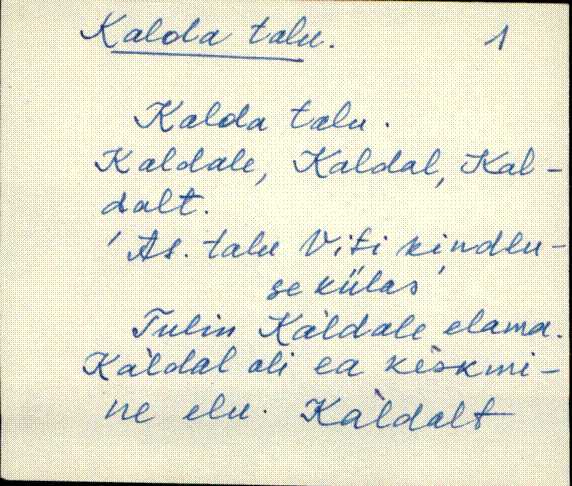 Kalda talu. 1
Kalda talu.
Kaldale, Kaldal, Kal-
dalt.
'As. talu Viti kindlu-
se külas'
Tulin Kàldale elama.
Kàldal oli ea kèskmi-
ne elu. Kàldalt